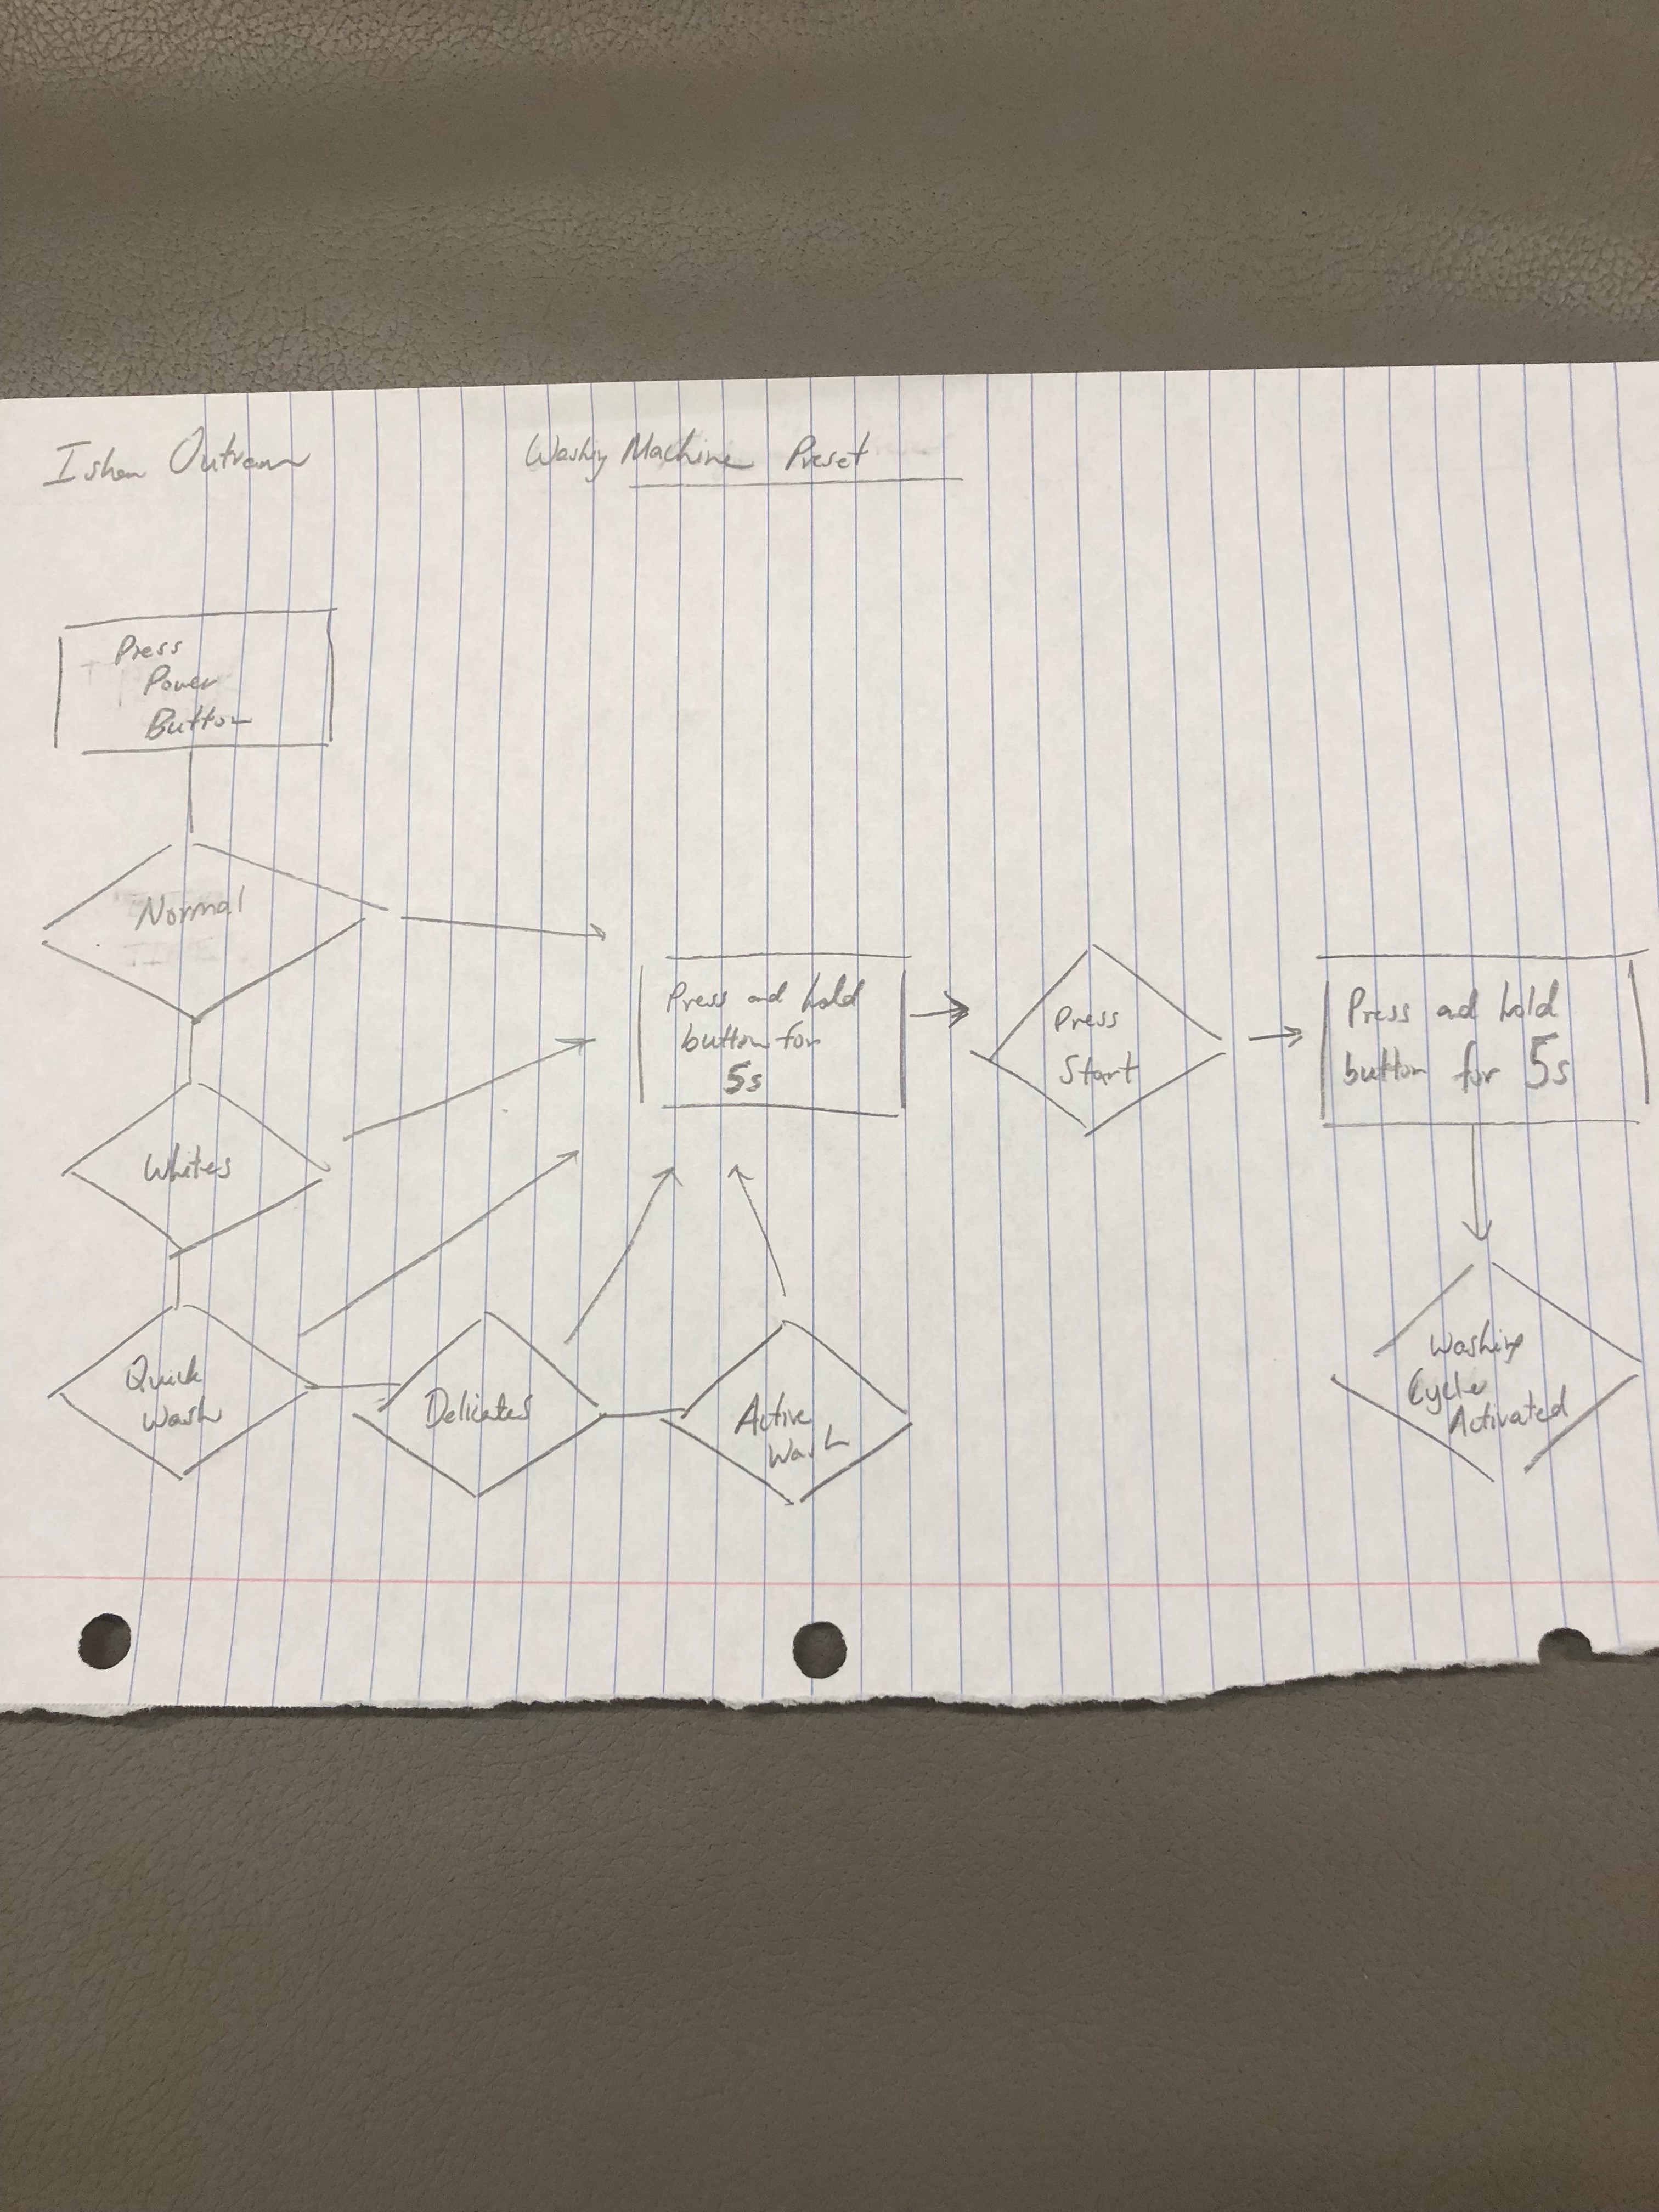 Ishan Outram
Washing Machine Preset
Press
Power
Button
Normal
Whites
Quick
Wash
Delicates
Active
Wash
Press and hold
button for
5s
Press
Start
Press and hold
button for 5s
Washing
Cycle
Activated